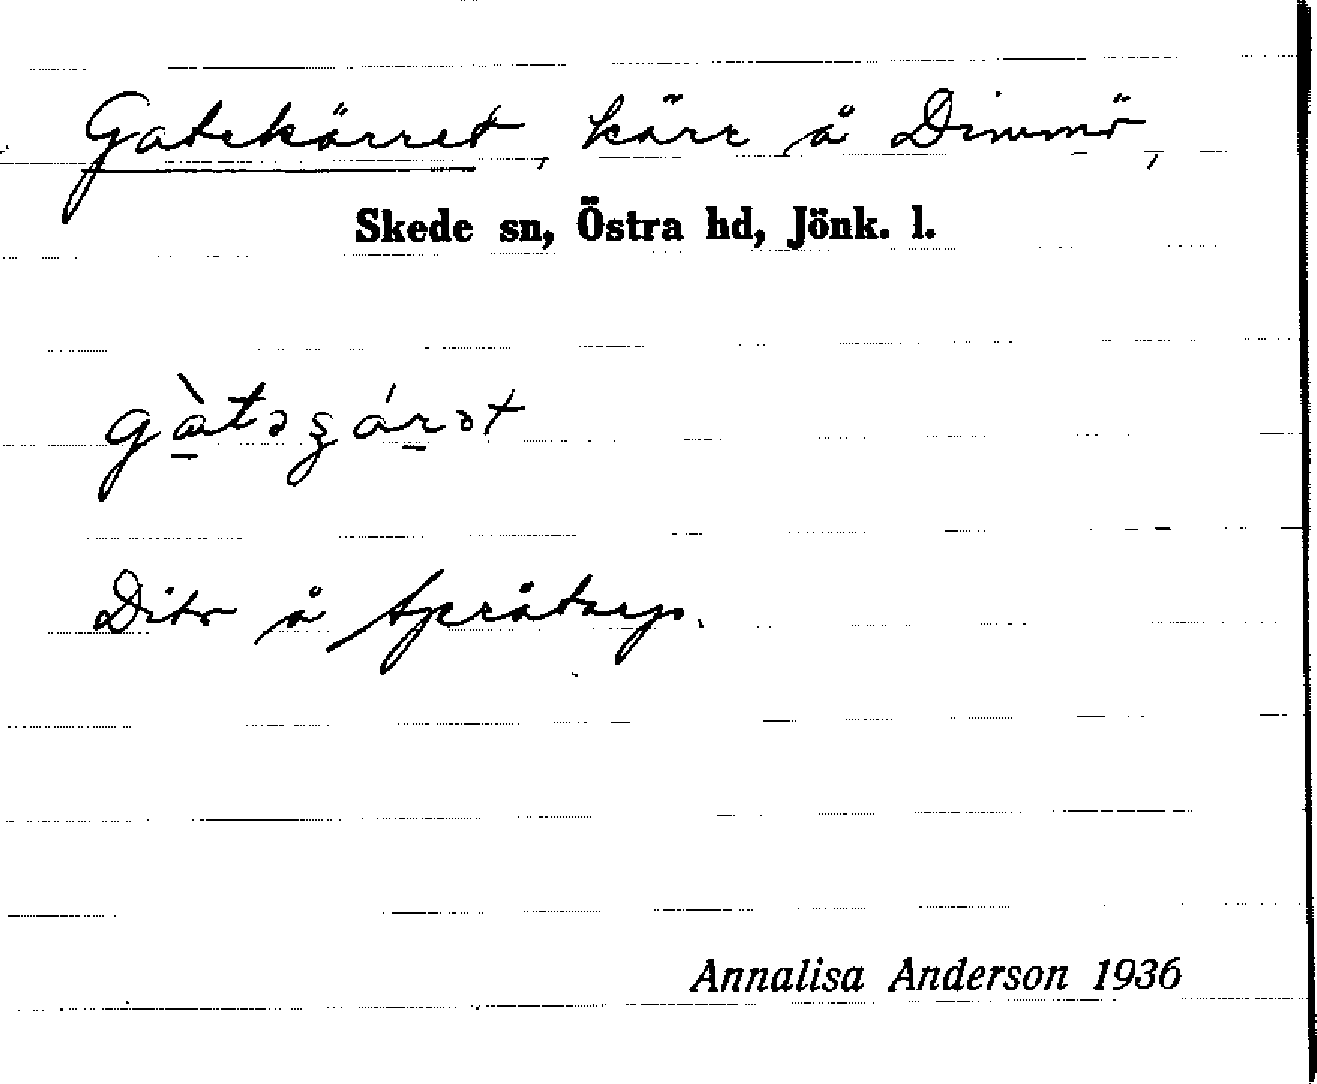 Gatekärret, kärr å Dimmö,
Skede sn, Östra hd, Jönk. l.
Dito å Språtorp.
Annalisa Anderson 1936